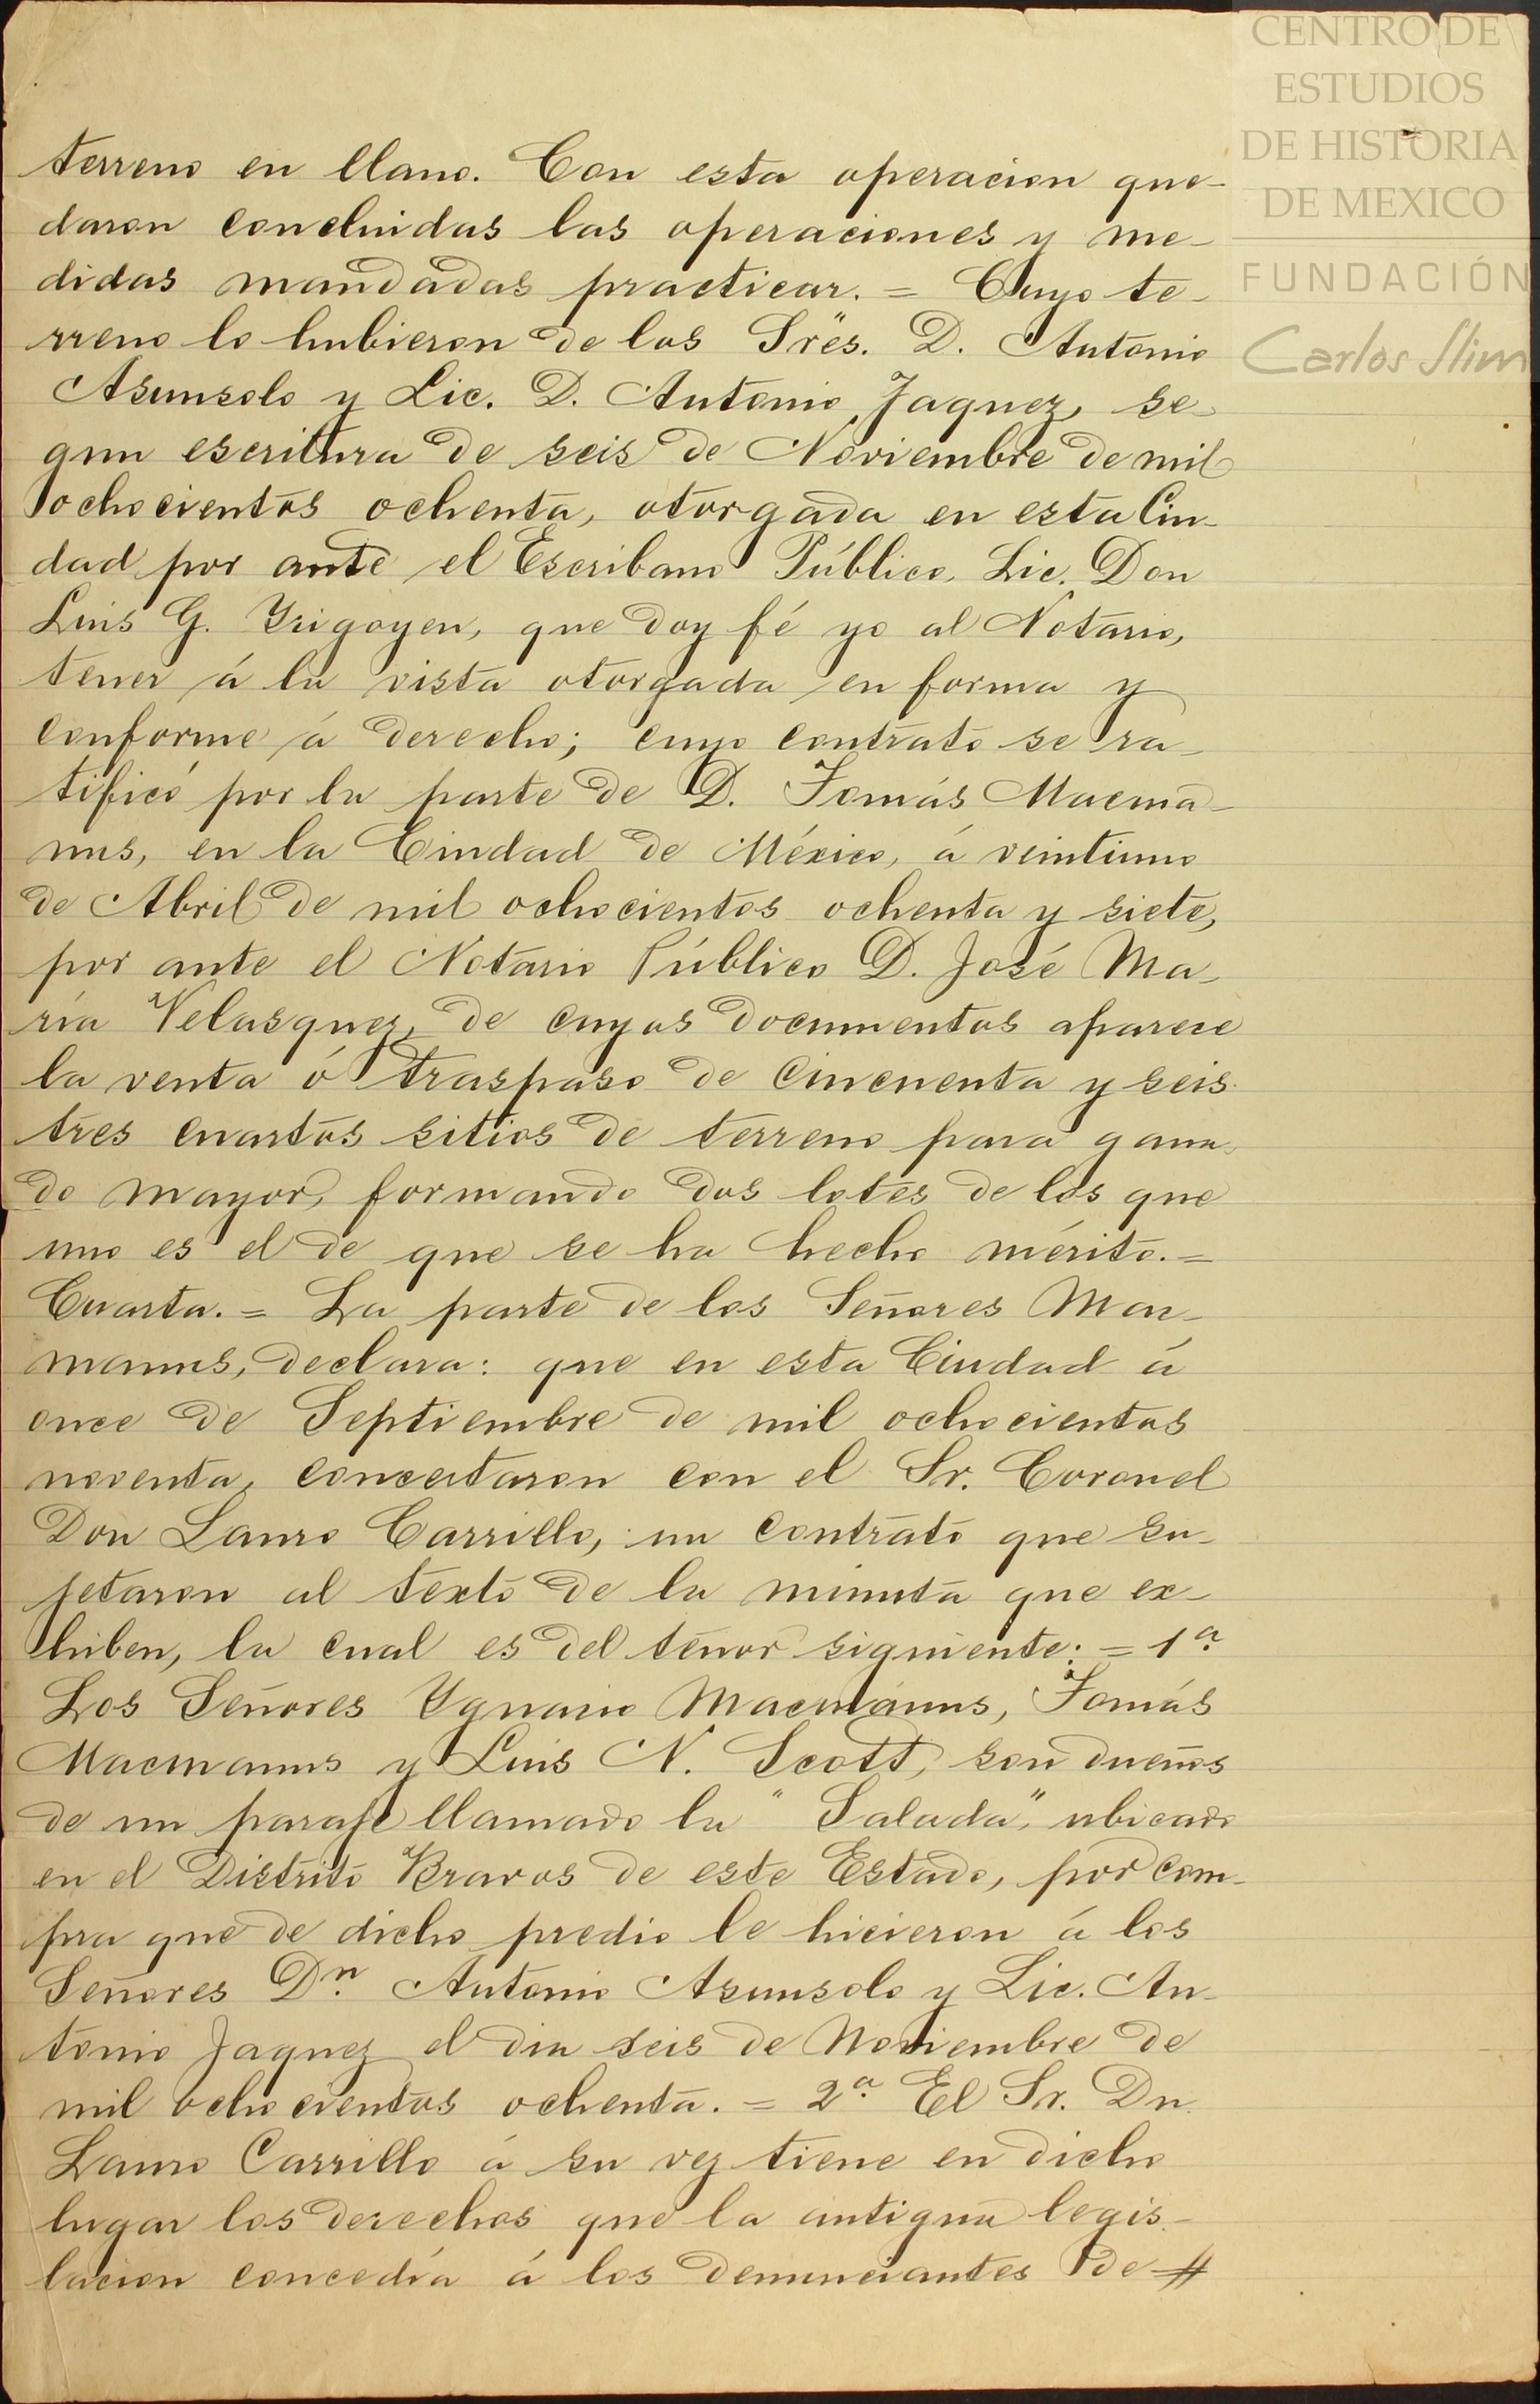 CENTRO DE
ESTUDIOS
DE HISTORIA
DE MEXICO
FUNDACIÓN
Carlos Slim
terreno en llano. Con esta operacion que-
daron concluidas las operaciones y me-
didas mandadas practicar. = Cuyo te-
rreno lo hubieron de los Sres. D. Antonio
Asunsolo y Lic. D. Antonio Jaquez, se-
gun escritura de seis de Noviembre de mil
ochocientos ochenta, otorgada en esta Ciu-
dad por ante el Escribano Público, Lic. Don
Luis G. Yrigoyen, que doy fé yo al Notario,
tener á la vista otorgada en forma y
conforme á derecho; cuyo contrato se ra-
tificó por la parte de D. Tomás Macma-
nus, en la Ciudad de México, á veintiuno
de Abril de mil ochocientos ochenta y siete,
por ante el Notario Público D. José Ma-
ría Velasquez, de cuyos documentos aparece
la venta ó traspaso de cincuenta y seis
tres cuartos sitios de terreno para gana-
do mayor, formando dos lotes de los que
uno es el de que se ha hecho mérito. =
Cuarta. = La parte de los Señores Mac-
manus, declara: que en esta Ciudad á
once de Septiembre de mil ochocientos
noventa, concertaron con el Sr. Coronel
Don Lauro Carrillo, un contrato que su-
jetaron al texto de la minuta que ex-
hiben, la cual es del tenor siguiente: = 1ª.
Los Señores Ygnacio Macmánus, Tomás
Macmanus y Luis N. Scott, son dueños
de un paraje llamado la "Salada", ubicado
en el Distrito Bravos de este Estado, por com-
pra que de dicho predio le hicieron á los
Señores Dn. Antonio Asunsolo y Lic. An-
tonio Jaquez el dia seis de Noviembre de
mil ochocientos ochenta. = 2ª. El Sr. Dn.
Lauro Carrillo á su vez tiene en dicho
lugar los derechos que la antigua legis-
lacion concedía á los denunciantes de #